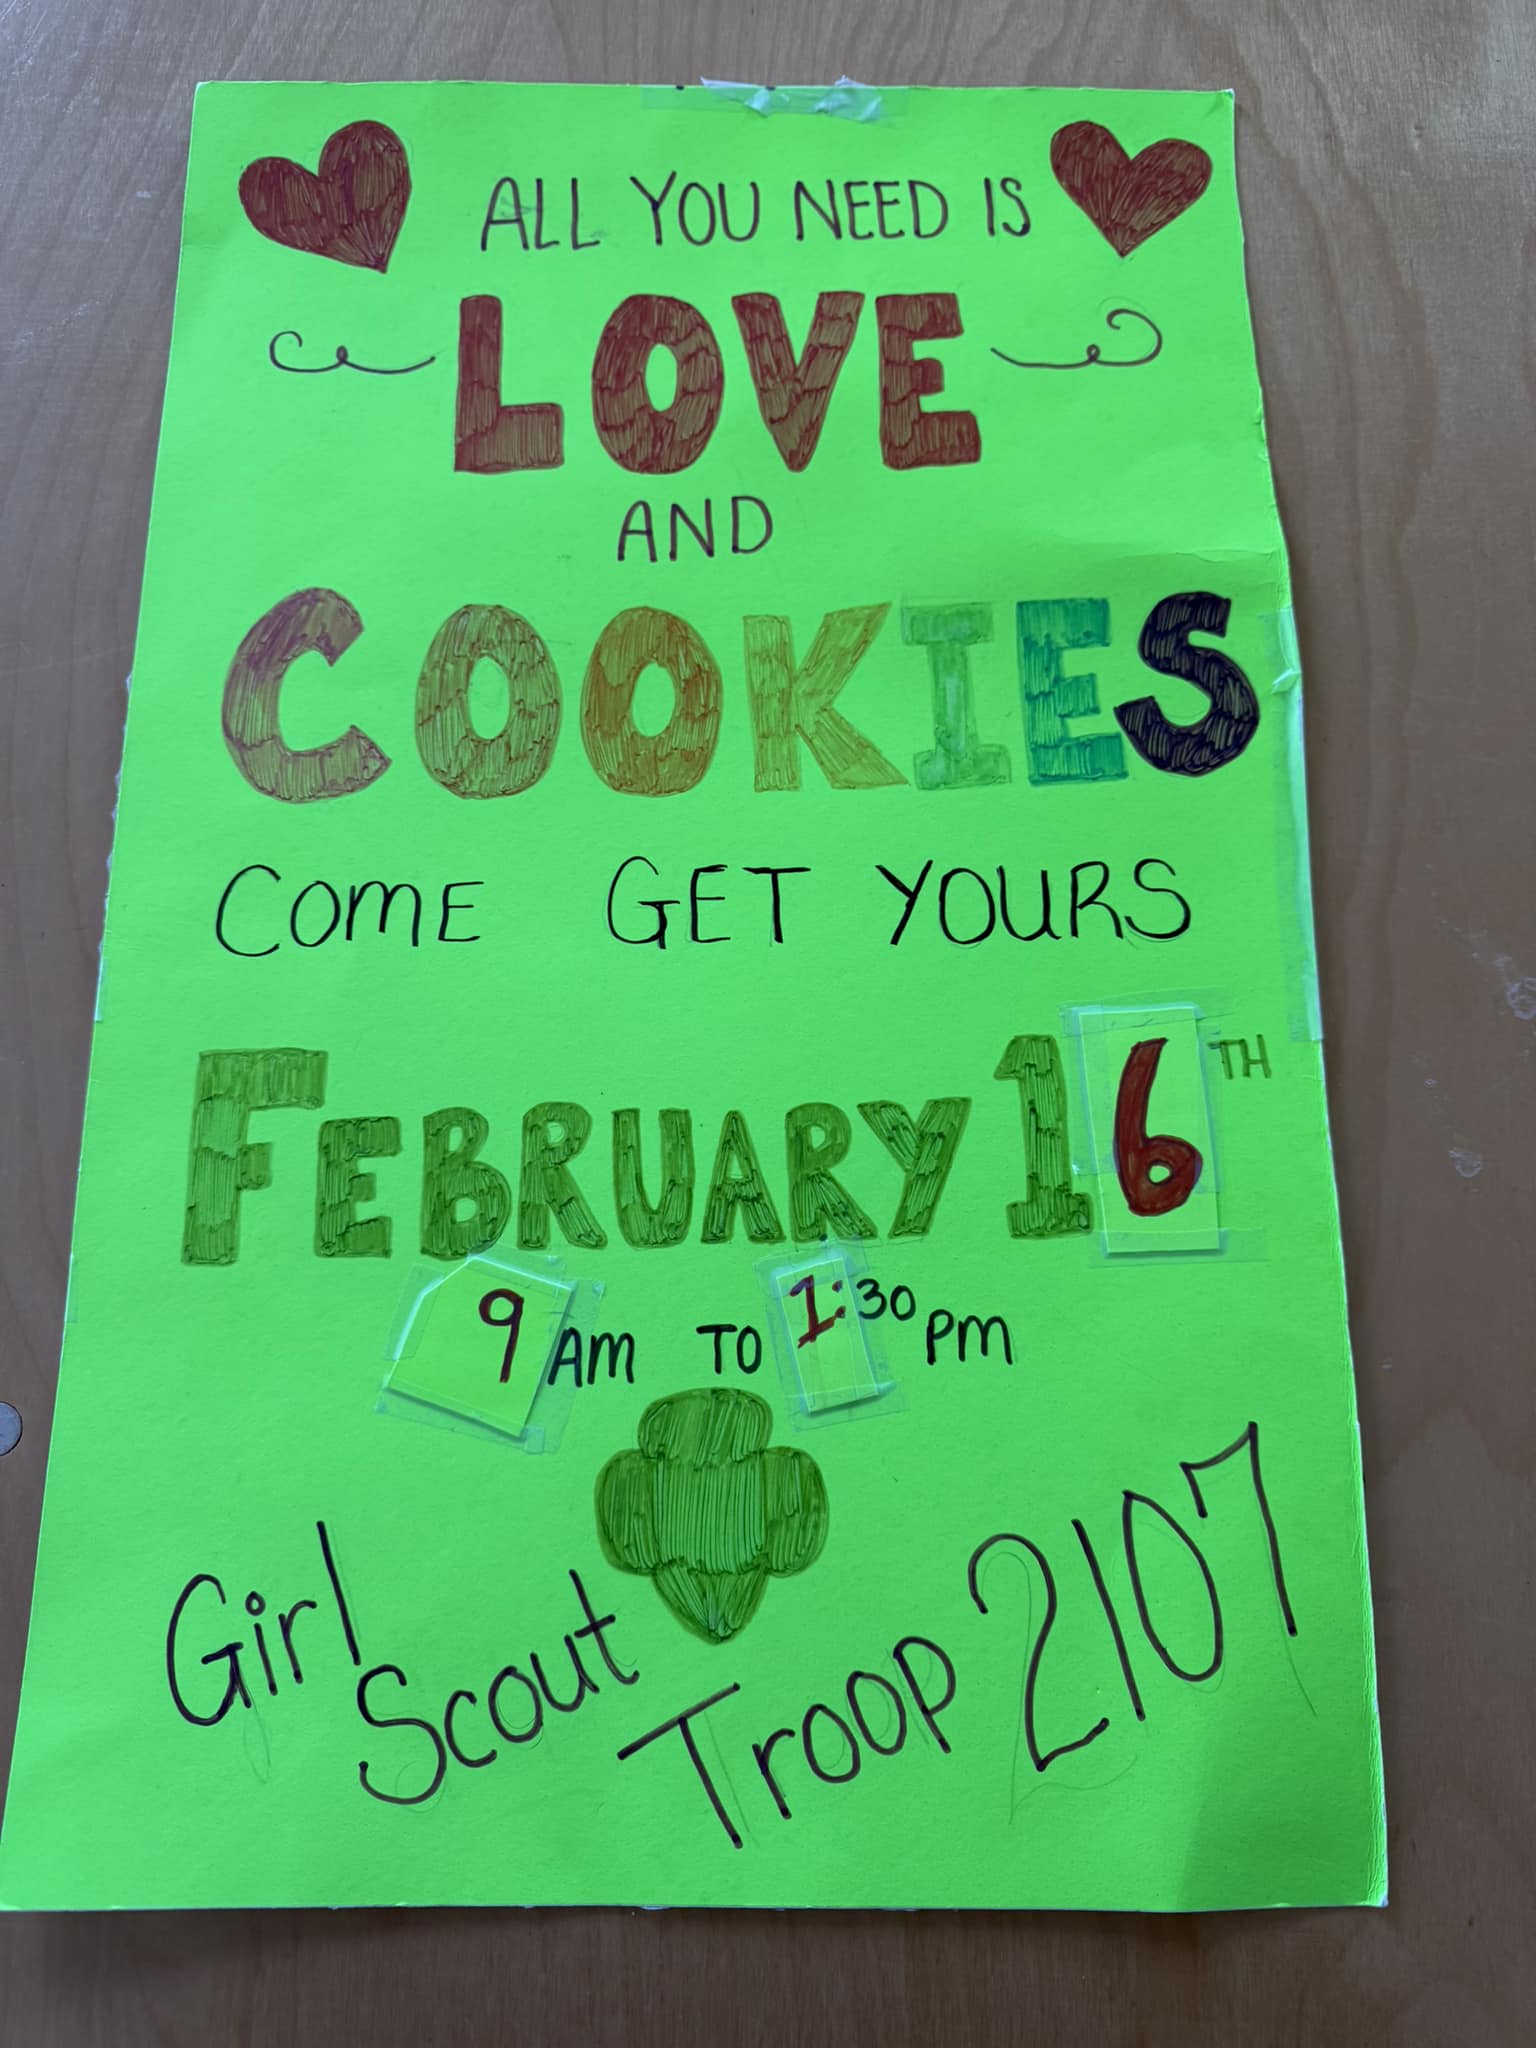 ALL YOU NEED IS
LOVE
AND
COOKIES
COME GET YOURS
FEBRUARY 16TH
9 AM TO 1:30 PM
Girl Scout Troop 2107